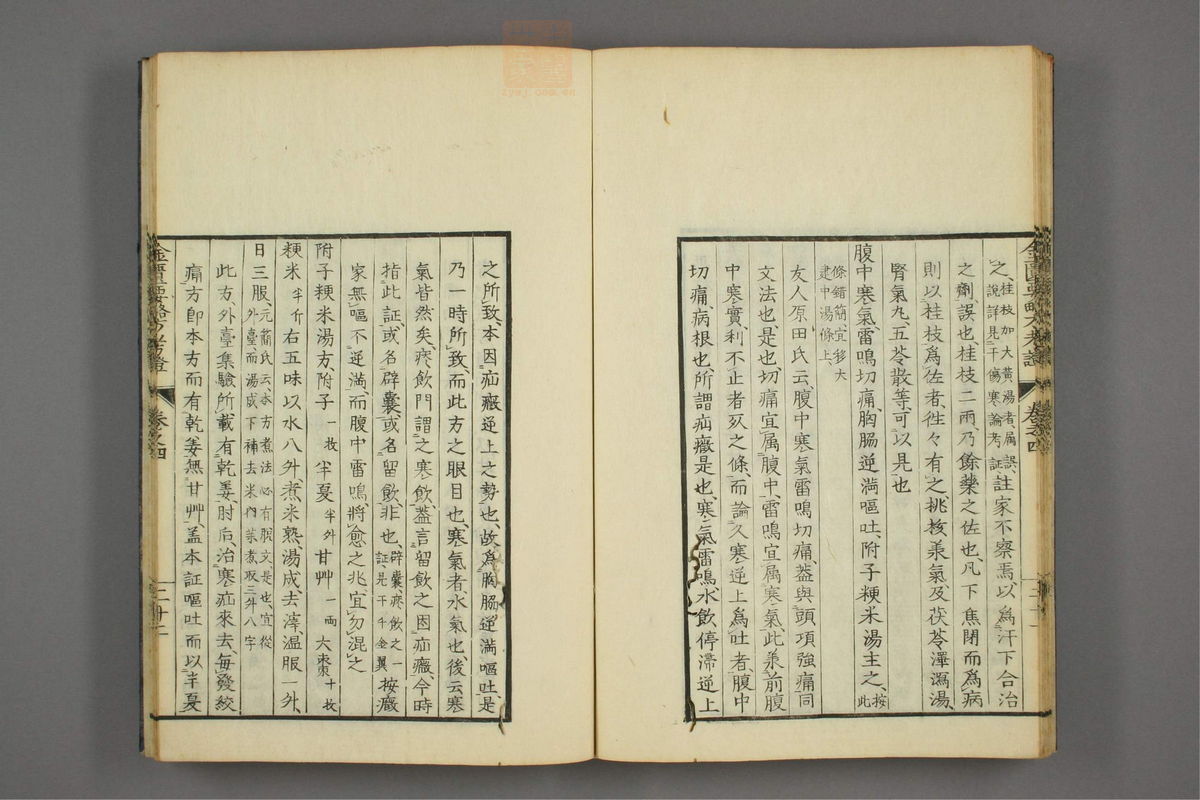 之、桂枝加大黃湯者、属誤、說詳見于傷寒論考証註家不察焉、以為汗下合治
之劑、誤也、桂枝二兩、乃餘藥之佐也、凡下焦閉而為病
則以桂枝為佐者、徃々有之、桃核承氣及茯苓澤瀉湯、
腎氣丸五苓散等、可以見也
腹中寒氣、雷鳴切痛、胸脇逆滿嘔吐、附子粳米湯主之、按此
條錯簡、宜移大建中湯條上、
友人原田氏云、腹中寒氣雷鳴切痛、蓋與頭項強痛同
文法也、是也、切痛宜属腹中、雷鳴宜属寒氣、此兼前腹
中寒實、利不止者死之條、而論久寒逆上為吐者、腹中
切痛、病根也、所謂疝癥是也、寒氣雷鳴、水飲停滯、逆上
金匱要略方考證 卷之四
之所致、本因疝癥逆上之勢也、故為胸脇逆滿嘔吐、是
乃一時所致、而此方之眼目也、寒氣者、水氣也、後云寒
氣皆然矣、痰飲門謂之寒飲、蓋言留飲之因疝癥、今時
指此証、或名癖囊、或名留飲、非也、癖囊、痰飲之一証、見于千金翼按癥
家無嘔不逆滿、而腹中雷鳴、將愈之兆、宜勿混之
附子粳米湯方、附子一枚半夏半升甘艸一兩大棗十枚
粳米半升右五味以水八升、煮米熟、湯成、去滓、溫服一升、
日三服、元簡氏云、本方煮法、必有脫文、是也、宜從外臺而湯成下補去米內藥煮取三升八字
此方、外臺集驗所載、有乾姜、肘后、治寒疝來去、每發絞
痛方、即本方而有乾姜無甘艸、盖本証嘔吐而以半夏
金匱要略方考證 卷之四